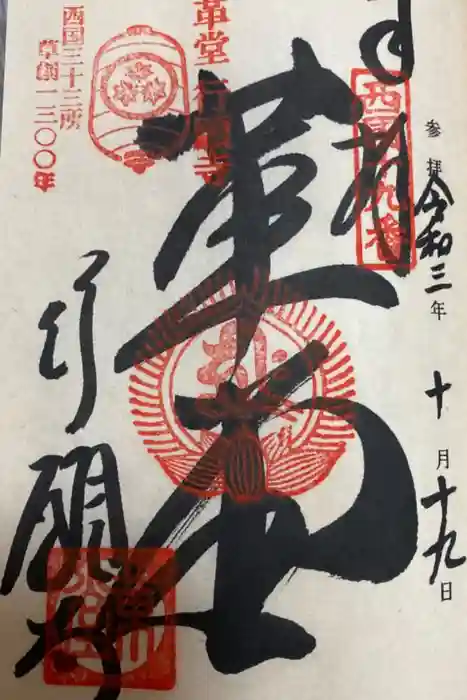 奉拝
西國十九番
参拝 令和三年 十月十九日
革堂
行願寺
革堂 行願寺
西国三十三所
草創一三〇〇年